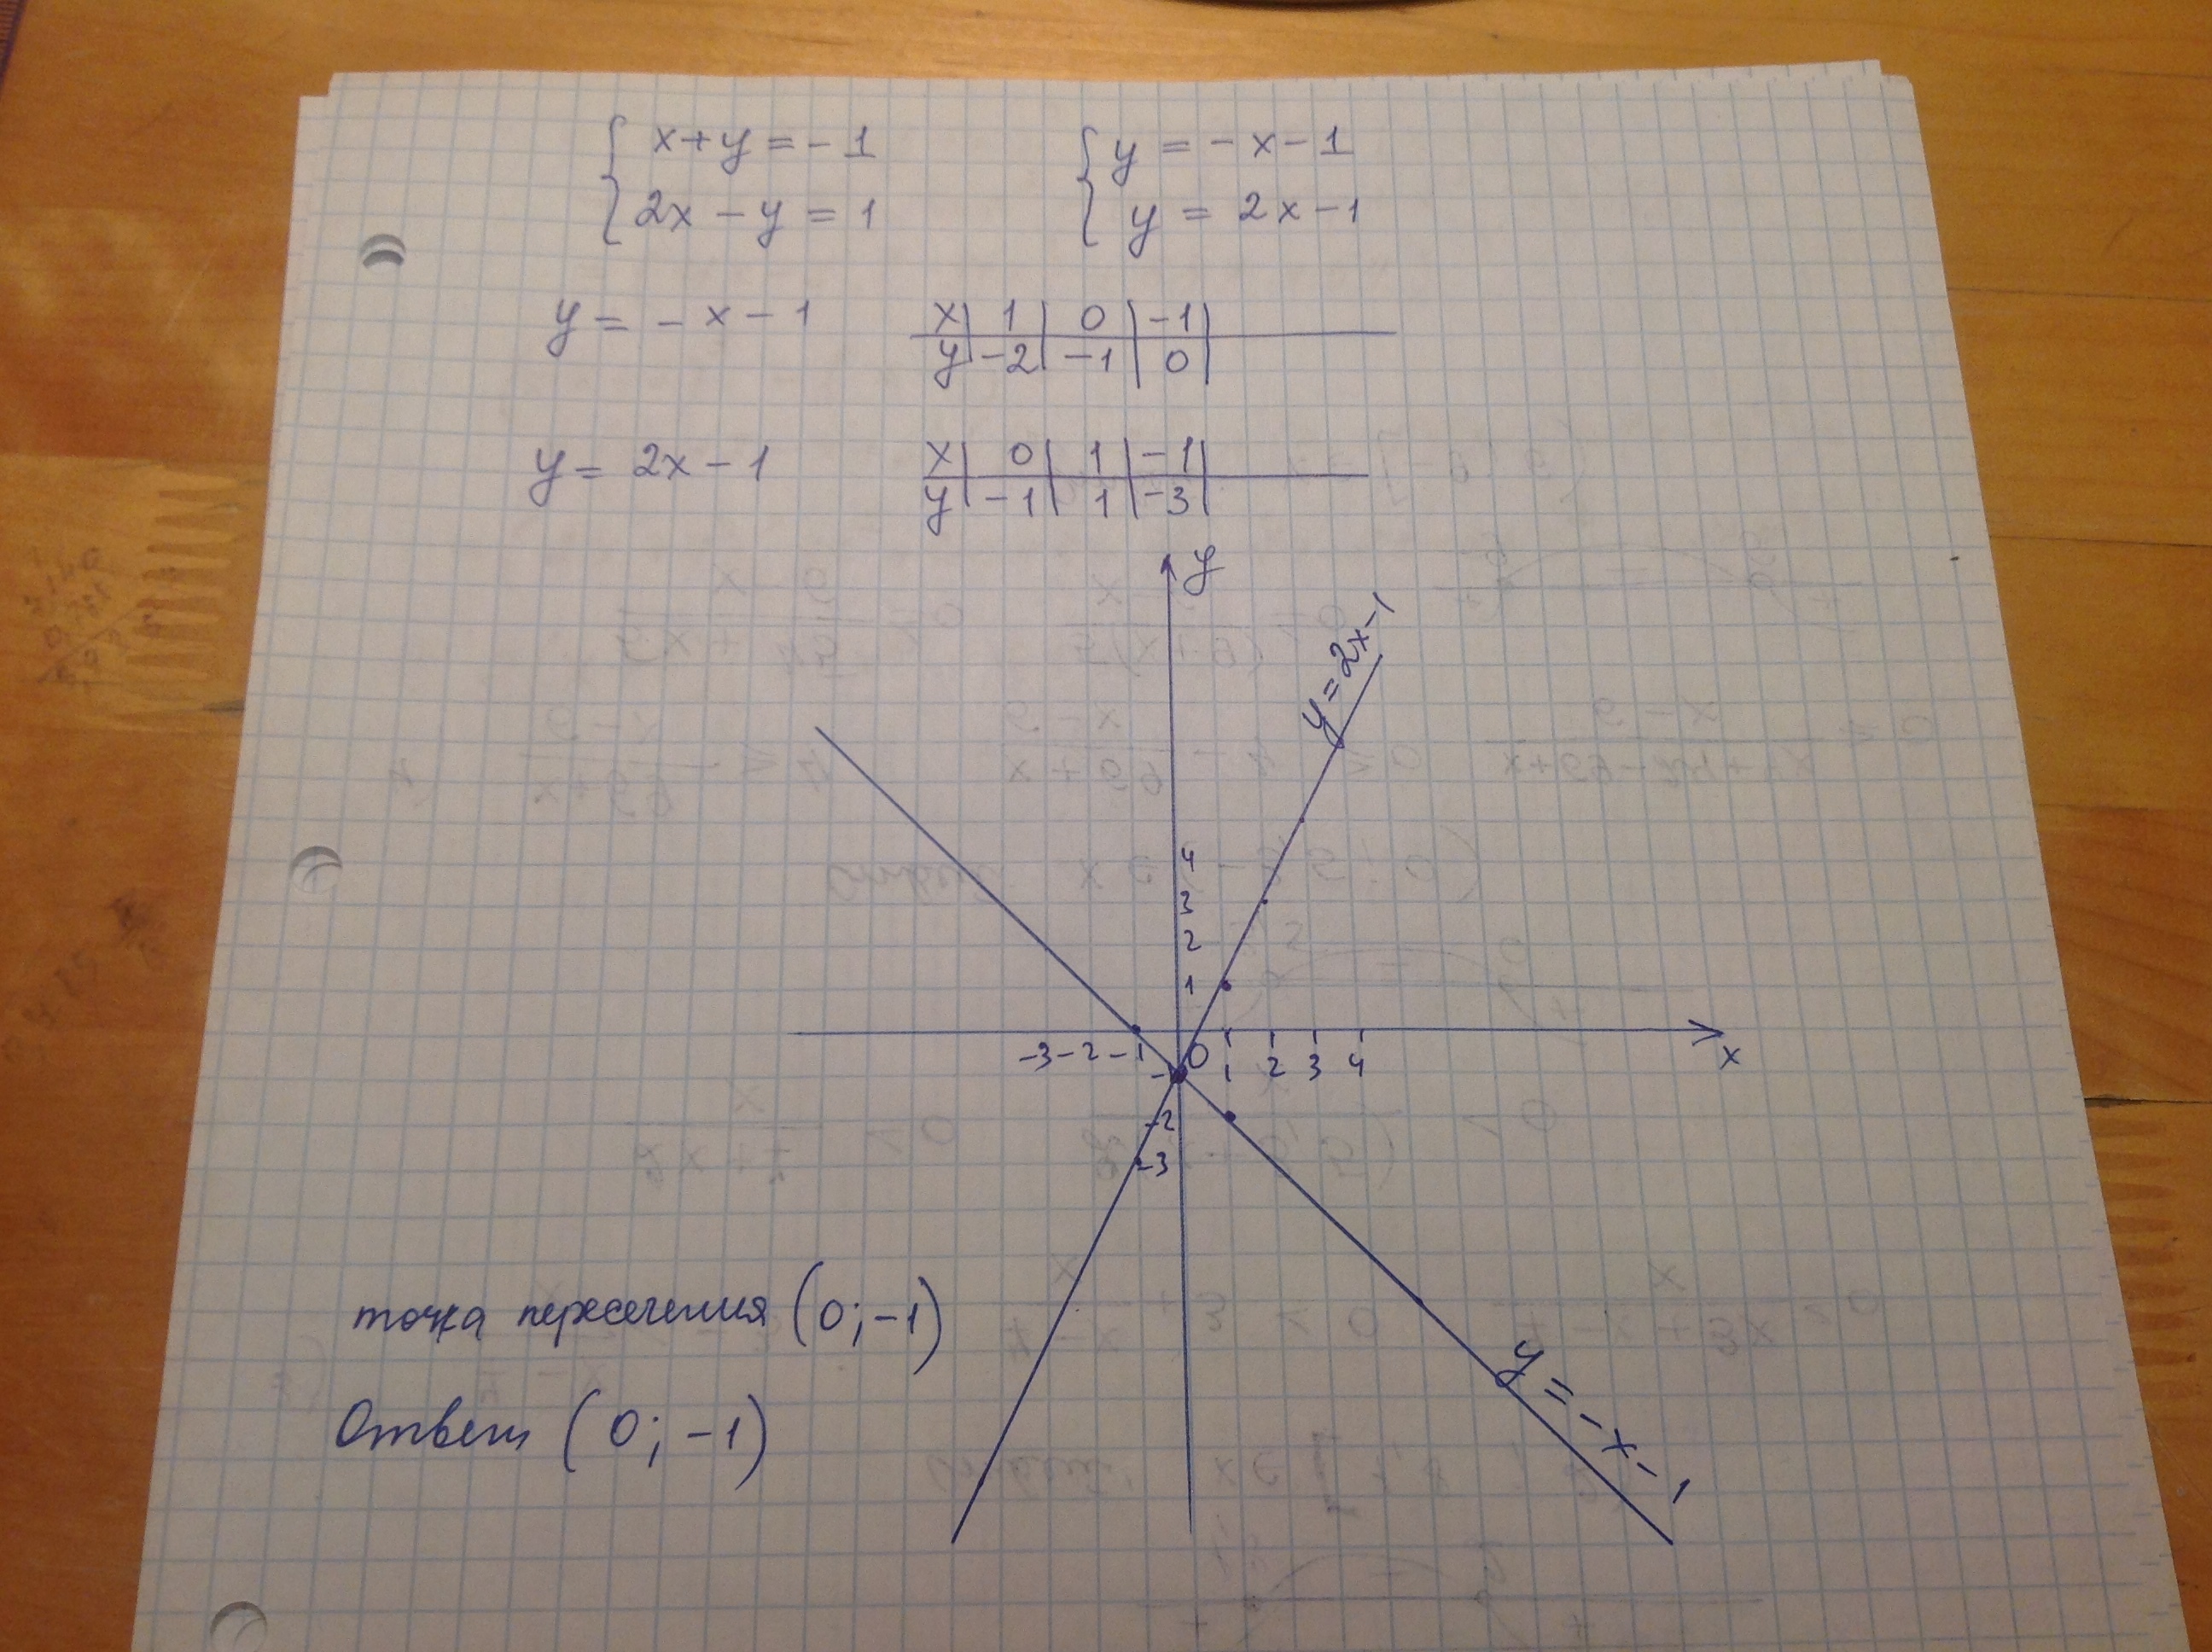 x+y=-1
2x-y=1
y=-x-1
y=2x-1
y=-x-1
x 1 0 -1
y -2 -1 0
y=2x-1
x 0 1 -1
y -1 1 -3
y
y=2x-1
4
3
2
1
-3 -2 -1 0 1 2 3 4 x
-1
-2
-3
точка пересечения (0;-1)
y=-x-1
Ответ (0;-1)